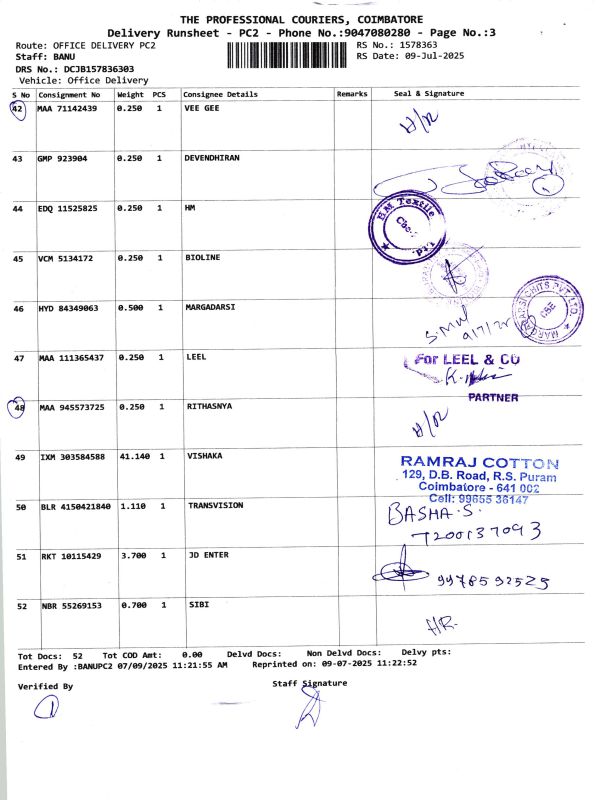 THE PROFESSIONAL COURIERS, COIMBATORE
Delivery Runsheet - PC2 - Phone No.:9047080280 - Page No.:3
Route: OFFICE DELIVERY PC2
RS No.: 1578363
Staff: BANU
RS Date: 09-Jul-2025
DRS No.: DCJB157836303
Vehicle: Office Delivery
S No Consignment No Weight PCS Consignee Details Remarks Seal & Signature
42 MAA 71142439 0.250 1 VEE GEE
43 GMP 923904 0.250 1 DEVENDHIRAN
44 EDQ 11525825 0.250 1 HM
BM Textile
Ltd.
45 VCM 5134172 0.250 1 BIOLINE
46 HYD 84349063 0.500 1 MARGADARSI
CHITS PVT. LTD.
CBE
47 MAA 111365437 0.250 1 LEEL
For LEEL & CO
PARTNER
48 MAA 945573725 0.250 1 RITHASNYA
49 IXM 303584588 41.140 1 VISHAKA
RAMRAJ COTTON
129, D.B. Road, R.S. Puram
Coimbatore - 641 002
Cell: 99655 36147
50 BLR 4150421840 1.110 1 TRANSVISION
BASHA.S.
7200137093
51 RKT 10115429 3.700 1 JD ENTER
9978592525
52 NBR 55269153 0.700 1 SIBI
HR.
Tot Docs: 52 Tot COD Amt: 0.00 Delvd Docs: Non Delvd Docs: Delvy pts:
Entered By :BANUPC2 07/09/2025 11:21:55 AM Reprinted on: 09-07-2025 11:22:52
Verified By
Staff Signature